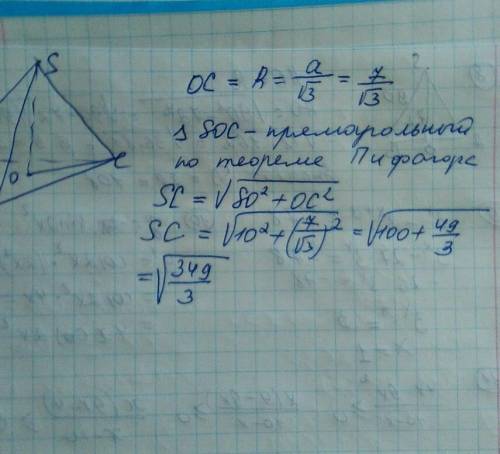 S
O
C
OC = R = a/√3 = 7/√3
△ SOC - прямоугольный
по теореме Пифагора
SC = √(SO² + OC²)
SC = √(10² + (7/√3)²) = √(100 + 49/3)
= √(349/3)